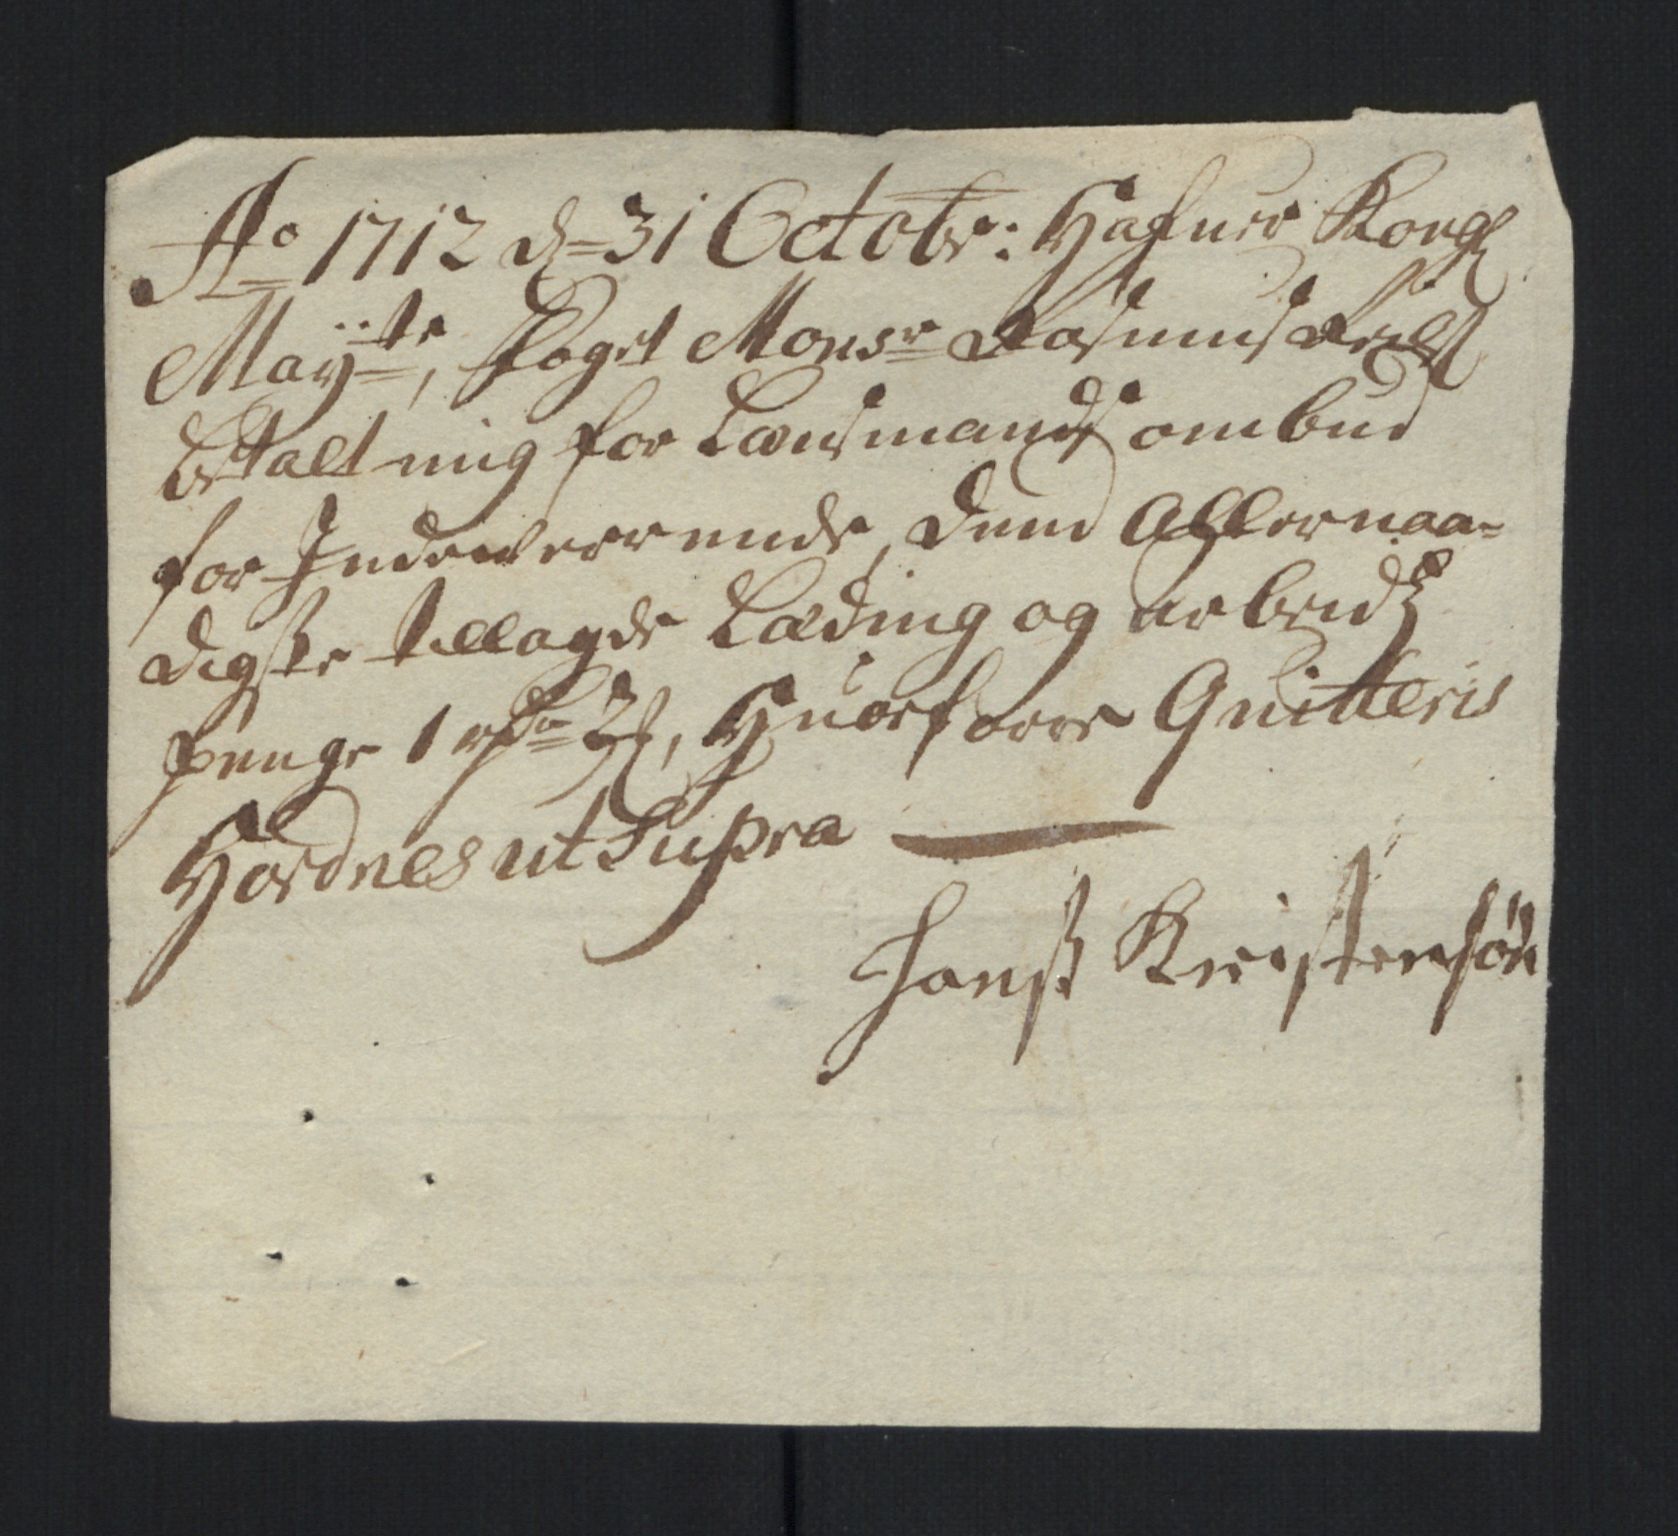 Ao 1712 d= 31 Octobr: Hafuer Kongl
Mayte, foget Monsr Rasmus
betalt mig for Lensmands ombud
for Indeverrende, dend Allernaa-
digste tillagde Læding og arbeids
penge 1 rdr 2 , Huorforre Quitteris
Hordnes ut Supra
Hanß Kristensøn